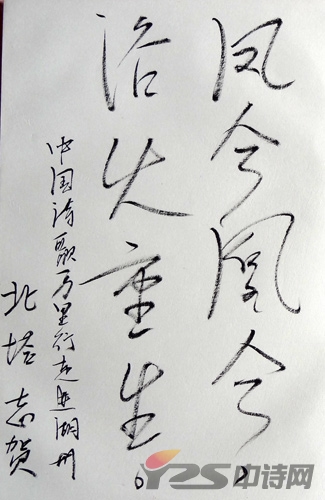 凤兮凰兮，
浴火重生。
中国诗歌万里行走进湖州
北塔志贺
YZS中诗网